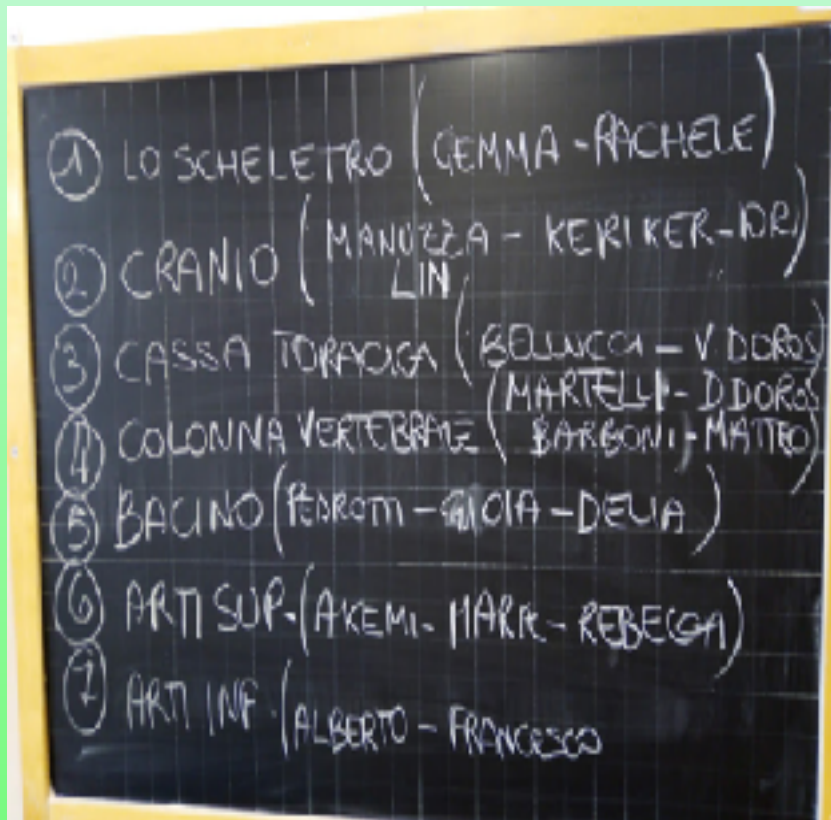 1 LO SCHELETRO (GEMMA - RACHELE)
2 CRANIO (MANUZZA - KERIKER - IDRI)
LIN
3 CASSA TORACICA (BELLUCCI - V. DOROS
MARTELLI - D DOROS
4 COLONNA VERTEBRALE ( BARBONI - MATTEO)
5 BACINO (PEDROTTI - GIOIA - DELIA)
6 ARTI SUP. (AKEMI - MARK - REBECCA)
7 ARTI INF. (ALBERTO - FRANCESCO